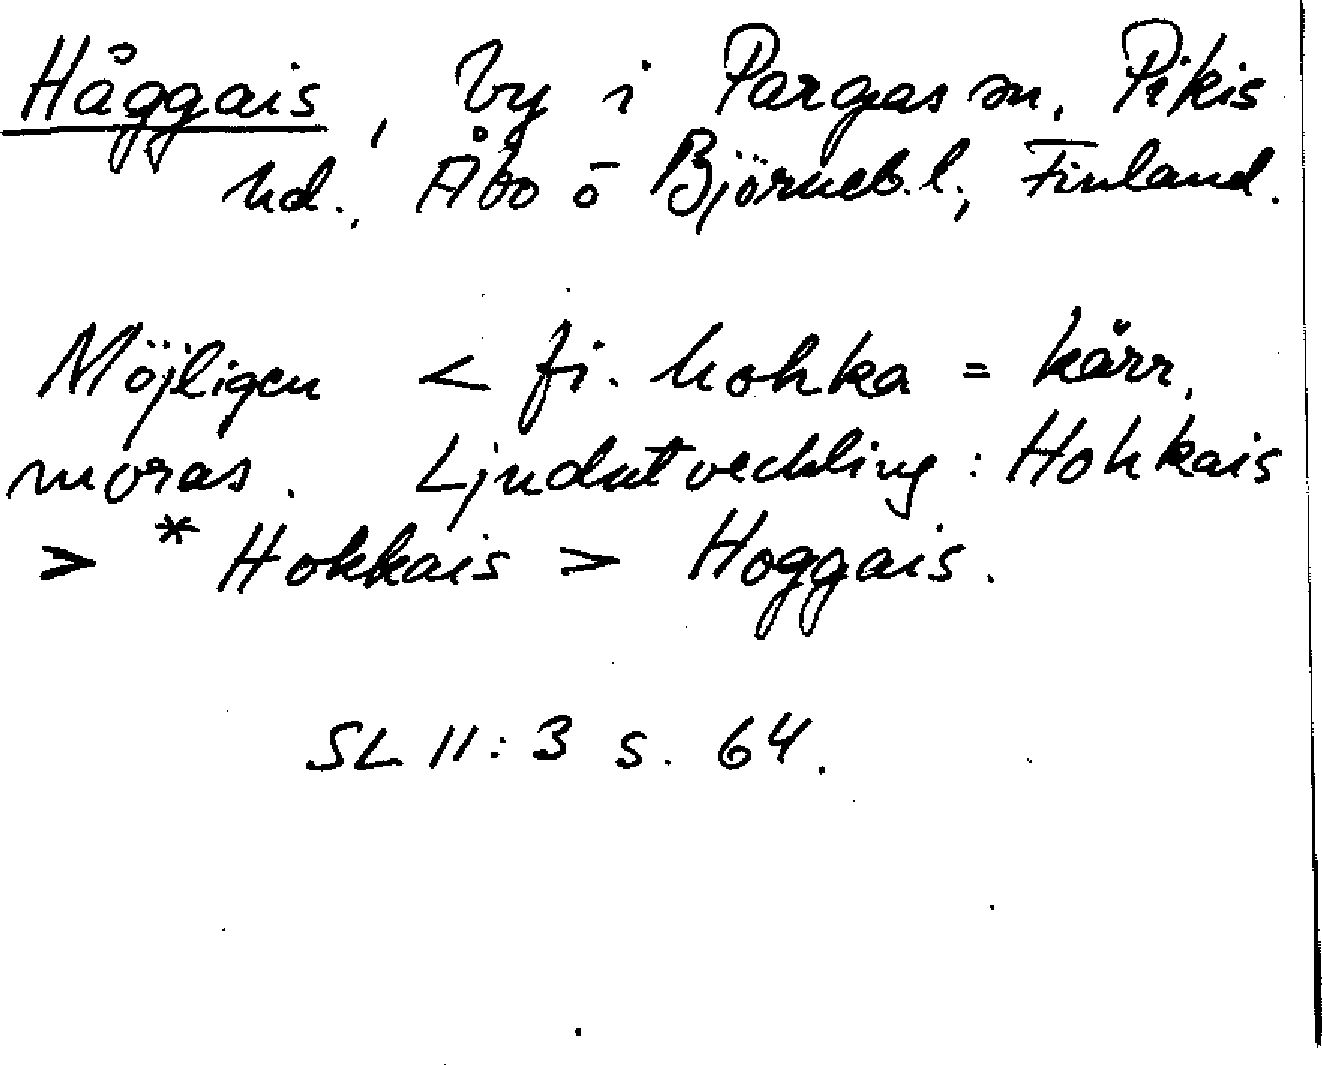 Håggais, by i Pargas sn, Pikis
hd., Åbo o Björneb. l., Finland.
Möjligen < fi. hohka = kärr,
moras. Ljudutveckling: Hohkais
> *Hokkais > Hoggais.
SL 11:3 s. 64.